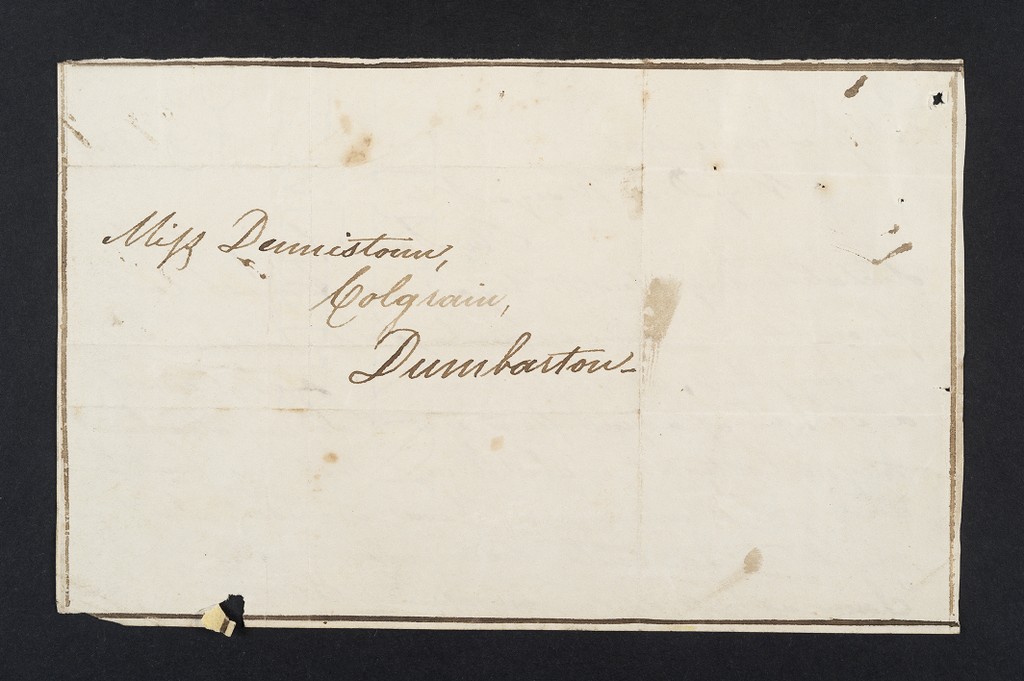 Miſs Dennistoun,
Colgrain,
Dumbarton-